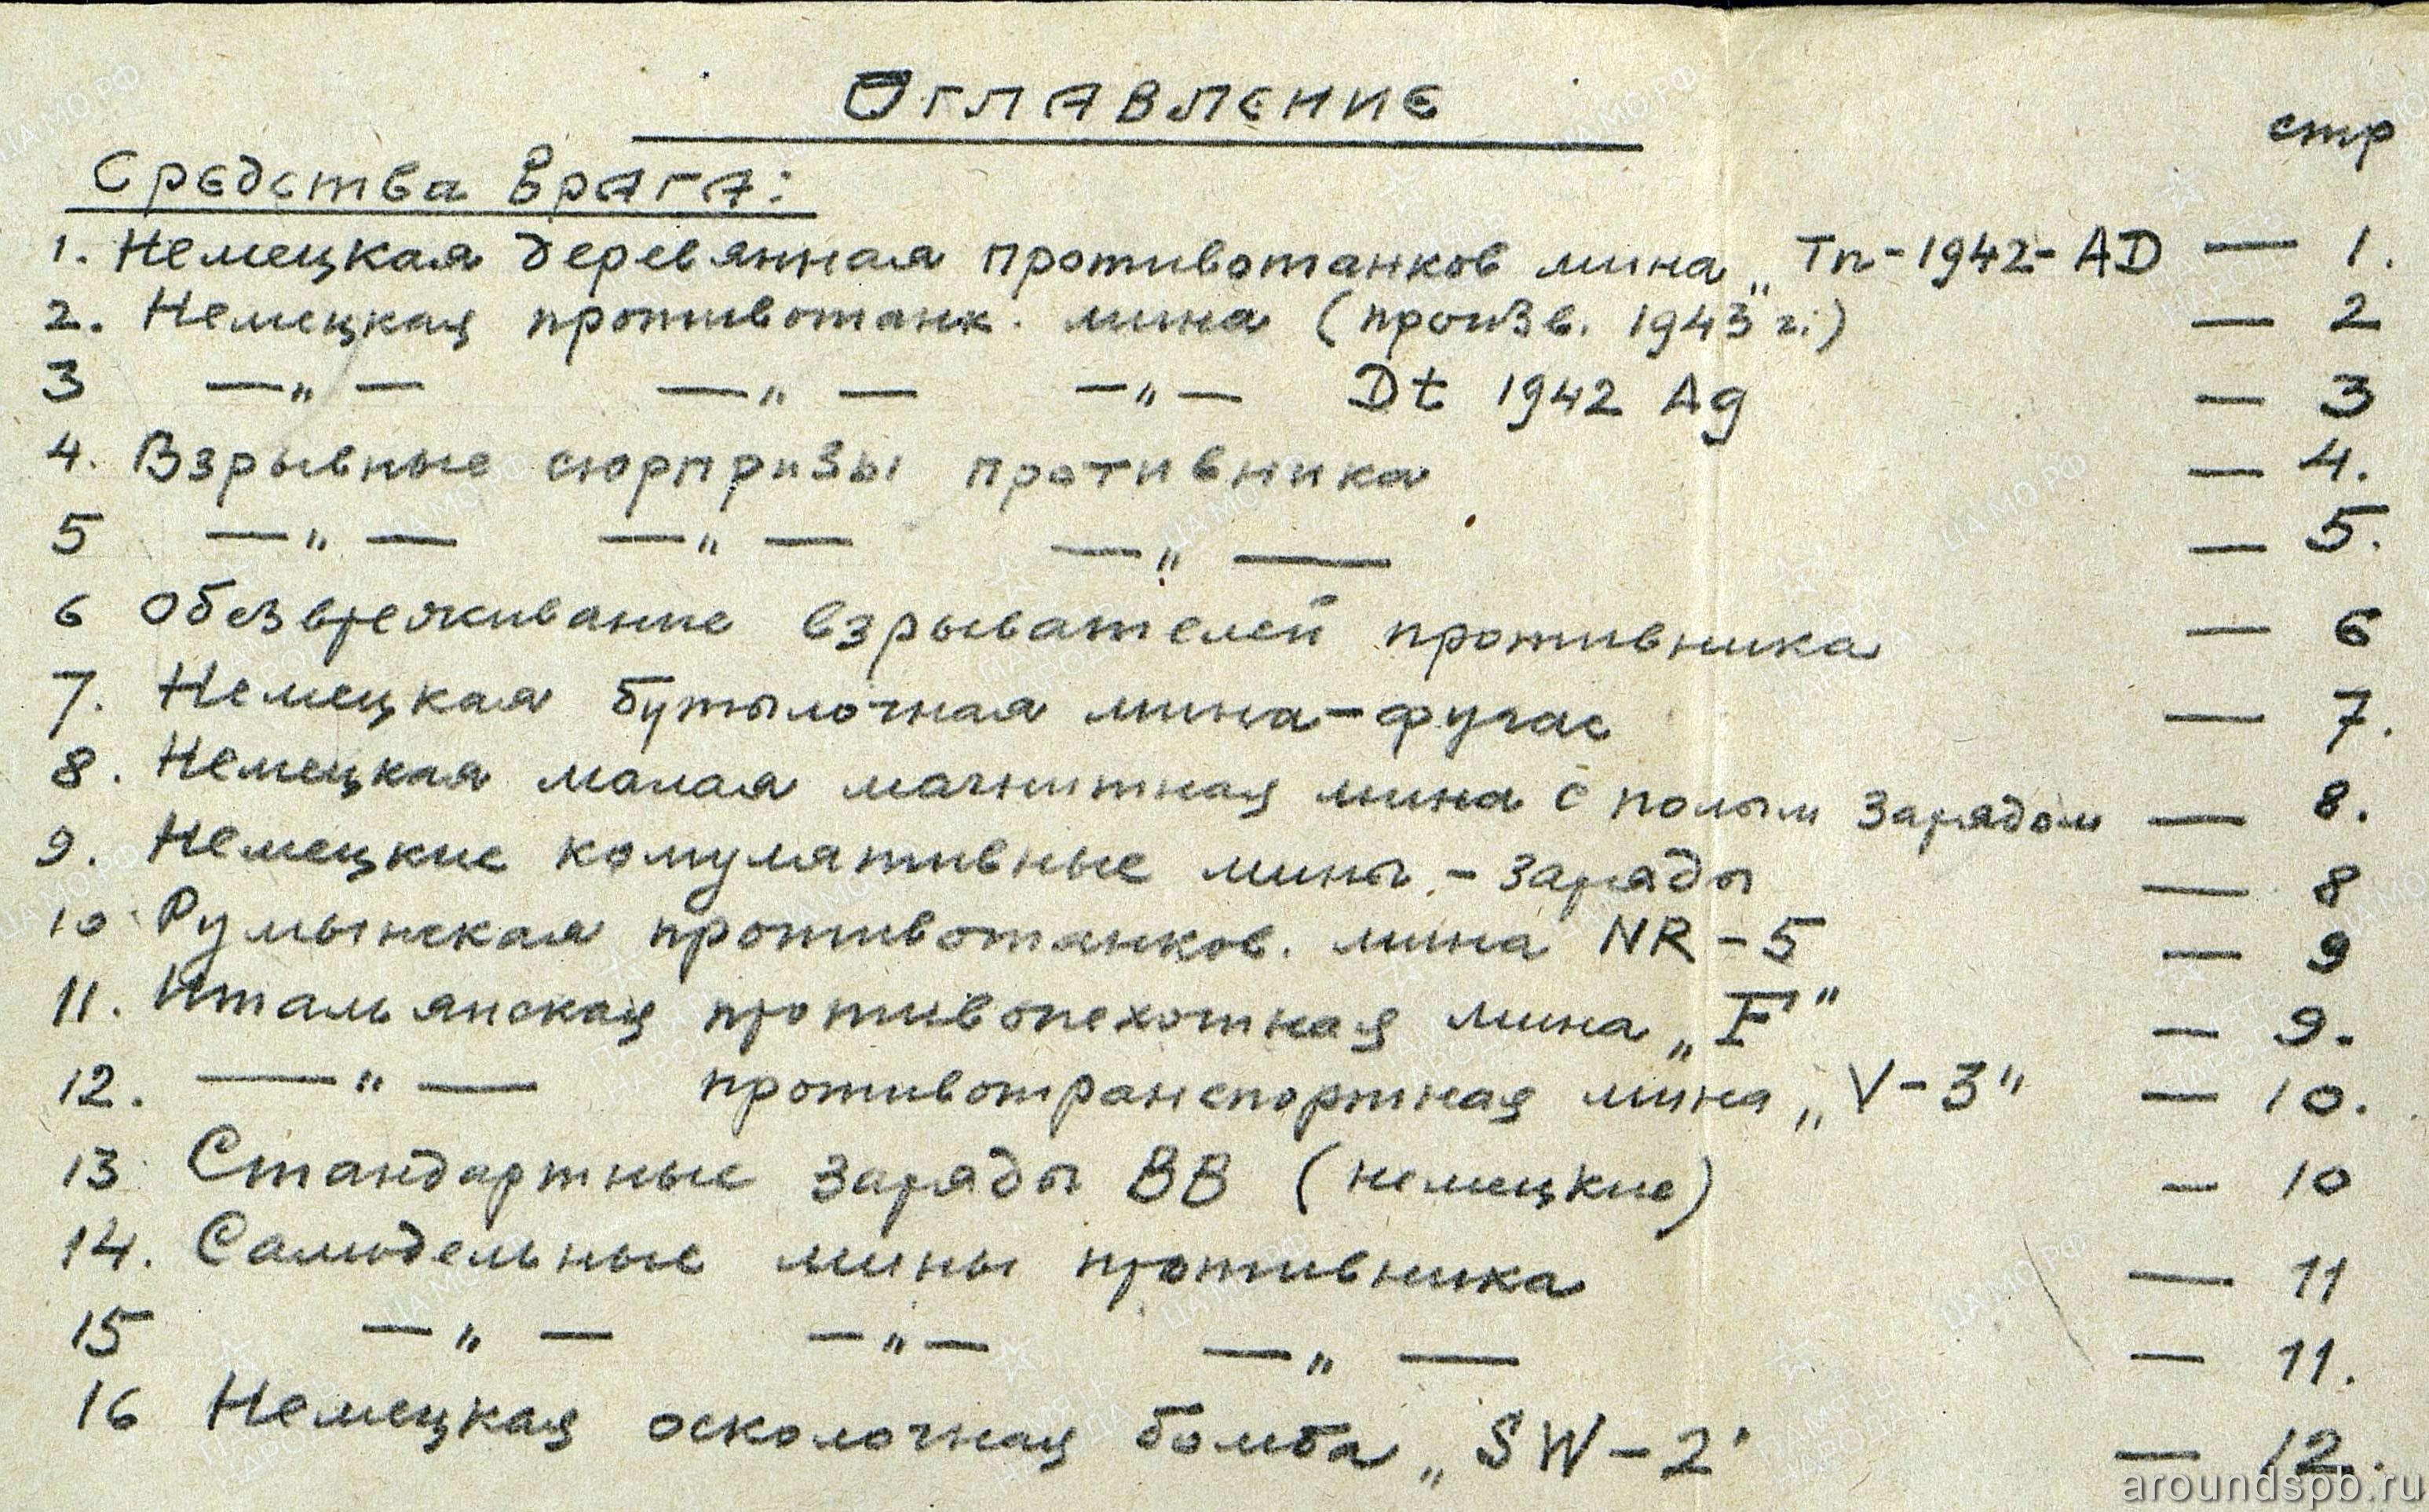 Оглавление
стр
Средства врага:
1. Немецкая деревянная противотанков мина „Тп-1942-AD — 1.
2. Немецкая противотанк. мина (произв. 1943 г.) — 2
3 —„— —„— —„— Dt 1942 Ag — 3
4. Взрывные сюрпризы противника — 4.
5 —„— —„— —„— — 5.
6 Обезвреживание взрывателей противника — 6
7. Немецкая бутылочная мина-фугас — 7.
8. Немецкая малая магнитная мина с полым зарядом — 8.
9. Немецкие комулятивные мины - заряды — 8
10 Румынская противотанков. мина NR-5 — 9
11. Итальянская противопехотная мина „F" — 9.
12. —„— противотранспортная мина „V-3" — 10.
13 Стандартные заряды ВВ (немецкие) — 10
14. Самодельные мины противника — 11
15 —„— —„— —„— — 11.
16 Немецкая осколочная бомба „SW-2" — 12.
aroundspb.ru